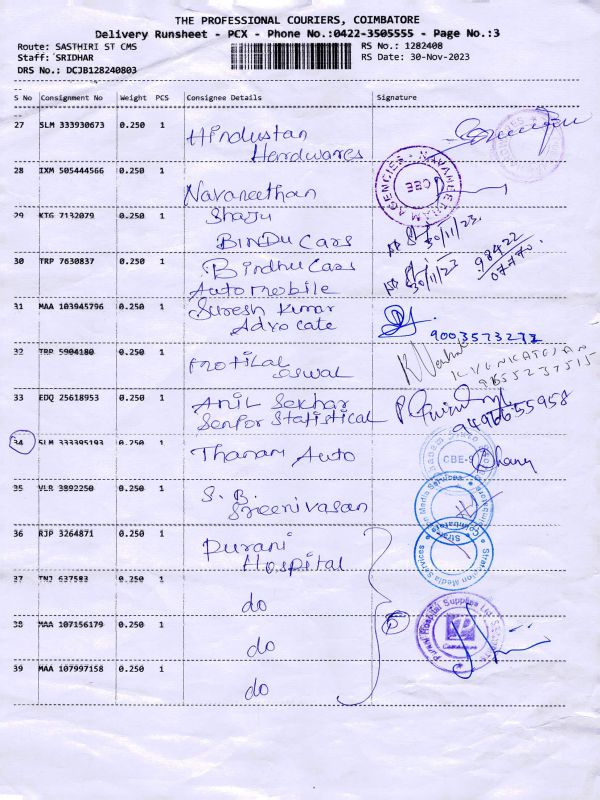 THE PROFESSIONAL COURIERS, COIMBATORE
Delivery Runsheet - PCX - Phone No.:0422-3505555 - Page No.:3
Route: SASTHIRI ST CMS
RS No.: 1282408
Staff: SRIDHAR
RS Date: 30-Nov-2023
DRS No.: DCJB128240803
S No Consignment No Weight PCS Consignee Details Signature
27 SLM 333930673 0.250 1 Hindustan
Hardwares
28 IXM 505444566 0.250 1
Navaneethan
NAVANEETHAM AGENCIES
CBE
29 KTG 7132079 0.250 1 Shaju
BINDU Cars 30/11/23.
30 TRP 7630837 0.250 1 Bindhu Cars
Automobile 30/11/23 98422
07770.
31 MAA 103945796 0.250 1 Suresh Kumar
Advocate 9003573272
32 TRP 5904180 0.250 1 Motilal
oswal K VENKATESAN
9655237515
33 EDQ 25618953 0.250 1 Anil Sekhar
Senfor Statistical 9496655958
34 SLM 333395193 0.250 1 Thanam Auto
CBE-9
Dhany
35 VLR 3892250 0.250 1 S. B.
Sreenivasan
Media Services
Coimbatore
36 RJP 3264871 0.250 1 Purani
Hospital
Media Services
37 TNJ 637583 0.250 1
do
38 MAA 107156179 0.250 1
do
Purani Hospital Supplies
39 MAA 107997158 0.250 1
do